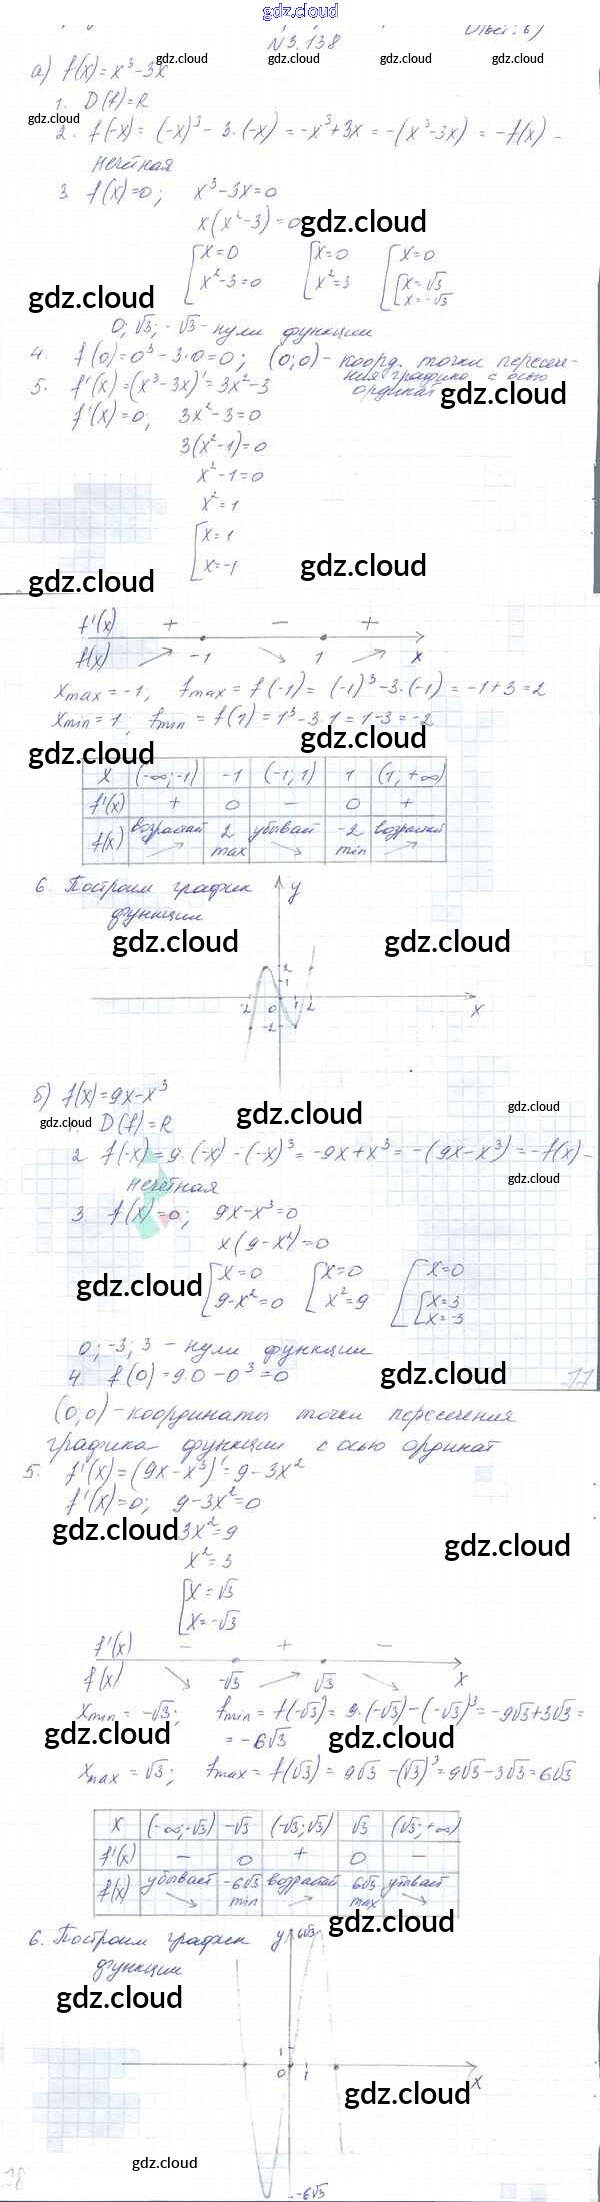 gdz.cloud
Ответ: б)
N3.138
gdz.cloud gdz.cloud gdz.cloud gdz.cloud
а) f(x)=x³-3x
1. D(f)=R
gdz.cloud
2. f(-x) = (-x)³ - 3·(-x) = -x³+3x = -(x³-3x) = -f(x) -
нечётная
3. f(x)=0; x³-3x=0
x(x²-3)=0
gdz.cloud
[x=0 [x=0 [x=0
x²-3=0 x²=3 [x=√3
x=-√3
gdz.cloud
0; √3; -√3 - нули функции
4. f(0)=0³-3·0=0; (0;0)- коорд. точки пересече-
ния графика с осью
ординат
5. f'(x)=(x³-3x)'=3x²-3
gdz.cloud
f'(x)=0; 3x²-3=0
3(x²-1)=0
x²-1=0
x²=1
[x=1
x=-1
gdz.cloud gdz.cloud
f'(x) + - +
f(x) -1 1 x
xmax = -1; fmax = f(-1) = (-1)³-3·(-1) = -1+3=2
xmin = 1; fmin = f(1) = 1³-3·1 = 1-3 = -2
gdz.cloud gdz.cloud
x (-∞;-1) -1 (-1;1) 1 (1;+∞)
f'(x) + 0 - 0 +
f(x) возрастает 2 max убывает -2 min возрастает
6. Построим график
функции
y
gdz.cloud gdz.cloud
2
1
-2 0 1 2 x
-2
б) f(x)=9x-x³
gdz.cloud gdz.cloud
1. D(f)=R
gdz.cloud
2. f(-x)=9·(-x)-(-x)³=-9x+x³=-(9x-x³)=-f(x)-
нечётная
gdz.cloud
3. f(x)=0; 9x-x³=0
x(9-x²)=0
[x=0 [x=0 [x=0
9-x²=0 x²=9 [x=3
x=-3
gdz.cloud gdz.cloud
0; -3; 3 - нули функции
4. f(0)=9·0-0³=0
gdz.cloud
(0;0)-координаты точки пересечения
графика функции с осью ординат
5. f'(x)=(9x-x³)'=9-3x²
f'(x)=0; 9-3x²=0
3x²=9
gdz.cloud gdz.cloud
x²=3
[x=√3
x=-√3
f'(x) - + -
f(x) -√3 √3 x
xmin = -√3; fmin = f(-√3) = 9·(-√3)-(-√3)³=-9√3+3√3=
=-6√3
gdz.cloud gdz.cloud
xmax = √3; fmax = f(√3) = 9√3-(√3)³=9√3-3√3=6√3
x (-∞;-√3) -√3 (-√3;√3) √3 (√3;+∞)
f'(x) - 0 + 0 -
f(x) убывает -6√3 min возрастает 6√3 max убывает
gdz.cloud
6. Построим график
функции
y 6√3
gdz.cloud
1
0 1 x
gdz.cloud
gdz.cloud
-6√3